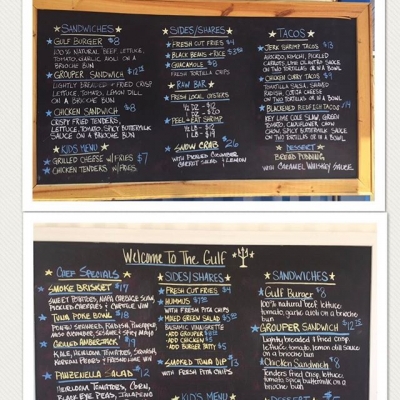 SANDWICHES
GULF BURGER $8
100% NATURAL BEEF, LETTUCE,
TOMATO, GARLIC AIOLI ON A
BRIOCHE BUN
GROUPER SANDWICH $12
LIGHTLY BREADED + FRIED CRISP
LETTUCE, TOMATO, LEMON DILL
ON A BRIOCHE BUN
CHICKEN SANDWICH $8
CRISPY FRIED TENDERS,
LETTUCE, TOMATO, SPICY BUTTERMILK
SAUCE ON A BRIOCHE BUN
KIDS MENU
GRILLED CHEESE W/FRIES $7
CHICKEN TENDERS W/FRIES
SIDES/SHARES
FRESH CUT FRIES $4
BLACK BEANS + RICE
GUACAMOLE $8
FRESH TORTILLA CHIPS
RAW BAR
FRESH LOCAL OYSTERS
1/2 DZ - $12
1 DZ - $20
PEEL + EAT SHRIMP
1/2 LB - $12
1 LB - $19
SNOW CRAB $26
WITH PICKLED CUCUMBER
CARROT SALAD + LEMON
TACOS
JERK SHRIMP TACOS $13
AVOCADO, KIMCHI, PICKLED
ON TWO TORTILLAS OR IN A BOWL
CHICKEN CURRY TACOS $9
TOMATILLO SALSA, SHAVED
RADISH, COTIJA CHEESE
ON TWO TORTILLAS OR IN A BOWL
BLACKENED REDFISH TACOS
KEY LIME COLE SLAW, GREEN
TOMATO, CAULIFLOWER CHOW
CHOW, SPICY BUTTERMILK SAUCE
ON TWO TORTILLAS OR IN A BOWL
DESSERT
BREAD PUDDING
WITH CARAMEL WHISKEY SAUCE
Welcome To The Gulf
CHEF SPECIALS
SMOKE BRISKET $17
SWEET POTATOES, NAPA CABBAGE SLAW,
PICKLED
TUNA POKE BOWL $18
PONZU SEAWEED, RADISH, PINEAPPLE,
MISO CUCUMBER, SESAME + SPICY MAYO
GRILLED AMBERJACK $19
KALE, HEIRLOOM TOMATOES, SPANISH
PANZENELLA SALAD $12
HEIRLOOM TOMATOES, CORN,
BLACK EYE PEAS, JALAPENO
SIDES/SHARES
FRESH CUT FRIES $4
HUMMUS
WITH FRESH PITA CHIPS
MIXED GREEN SALAD
BALSAMIC VINAIGRETTE
ADD GROUPER
ADD CHICKEN $5
ADD BURGER PATTY $5
SMOKED TUNA DIP $13
WITH FRESH PITA CHIPS
KIDS MENU
SANDWICHES
Gulf Burger $8
100% natural beef lettuce
tomato, garlic aioli on a brioche
bun
GROUPER SANDWICH $12
Lightly breaded & fried crisp
lettuce, tomato, lemon dill sauce
on a brioche bun
Chicken Sandwich $8
Tenders fried crisp lettuce
tomato, spicy buttermilk on a
bun
DESSERT